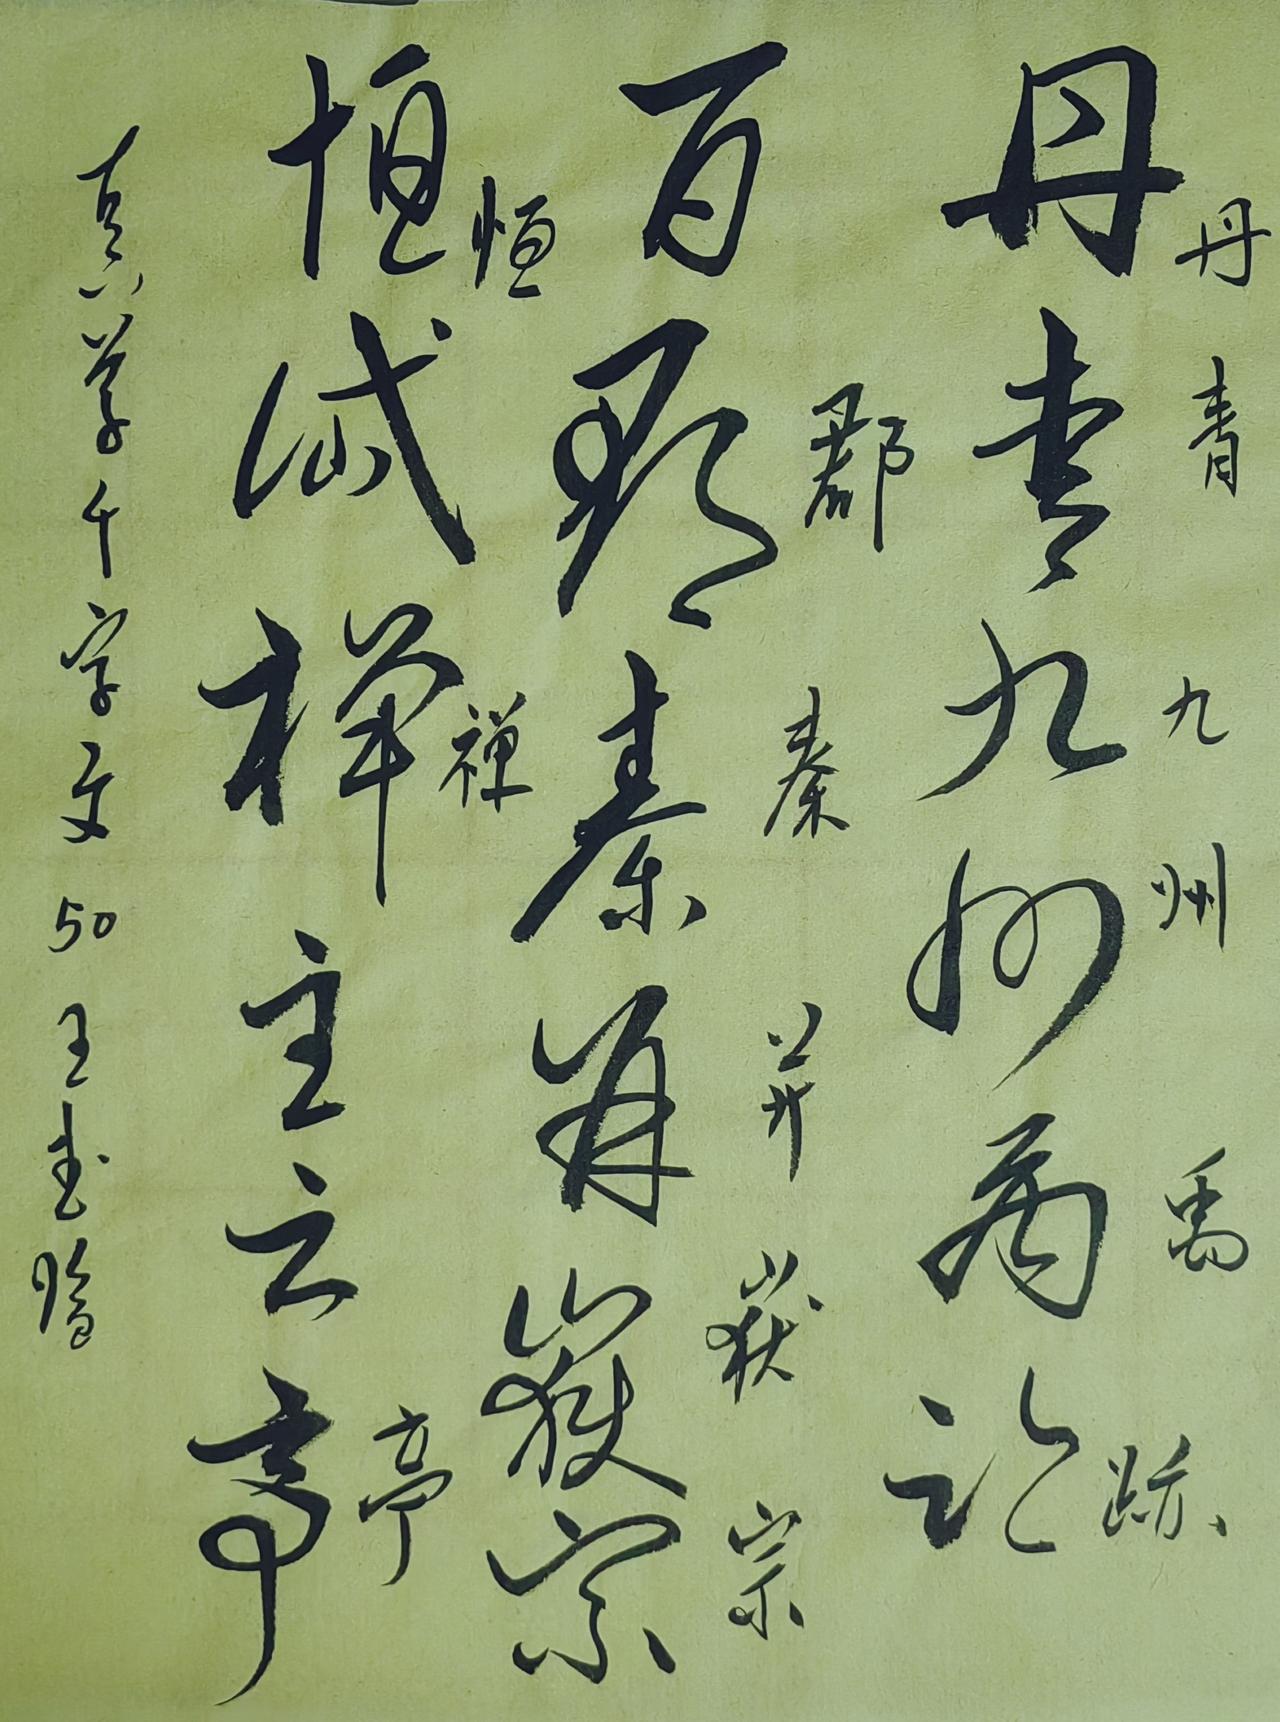 丹青九州禹跡
丹青九州禹跡
百郡秦并嶽宗
郡秦并嶽宗
恒岱禅主云亭
恒禅亭
真草千字文50王